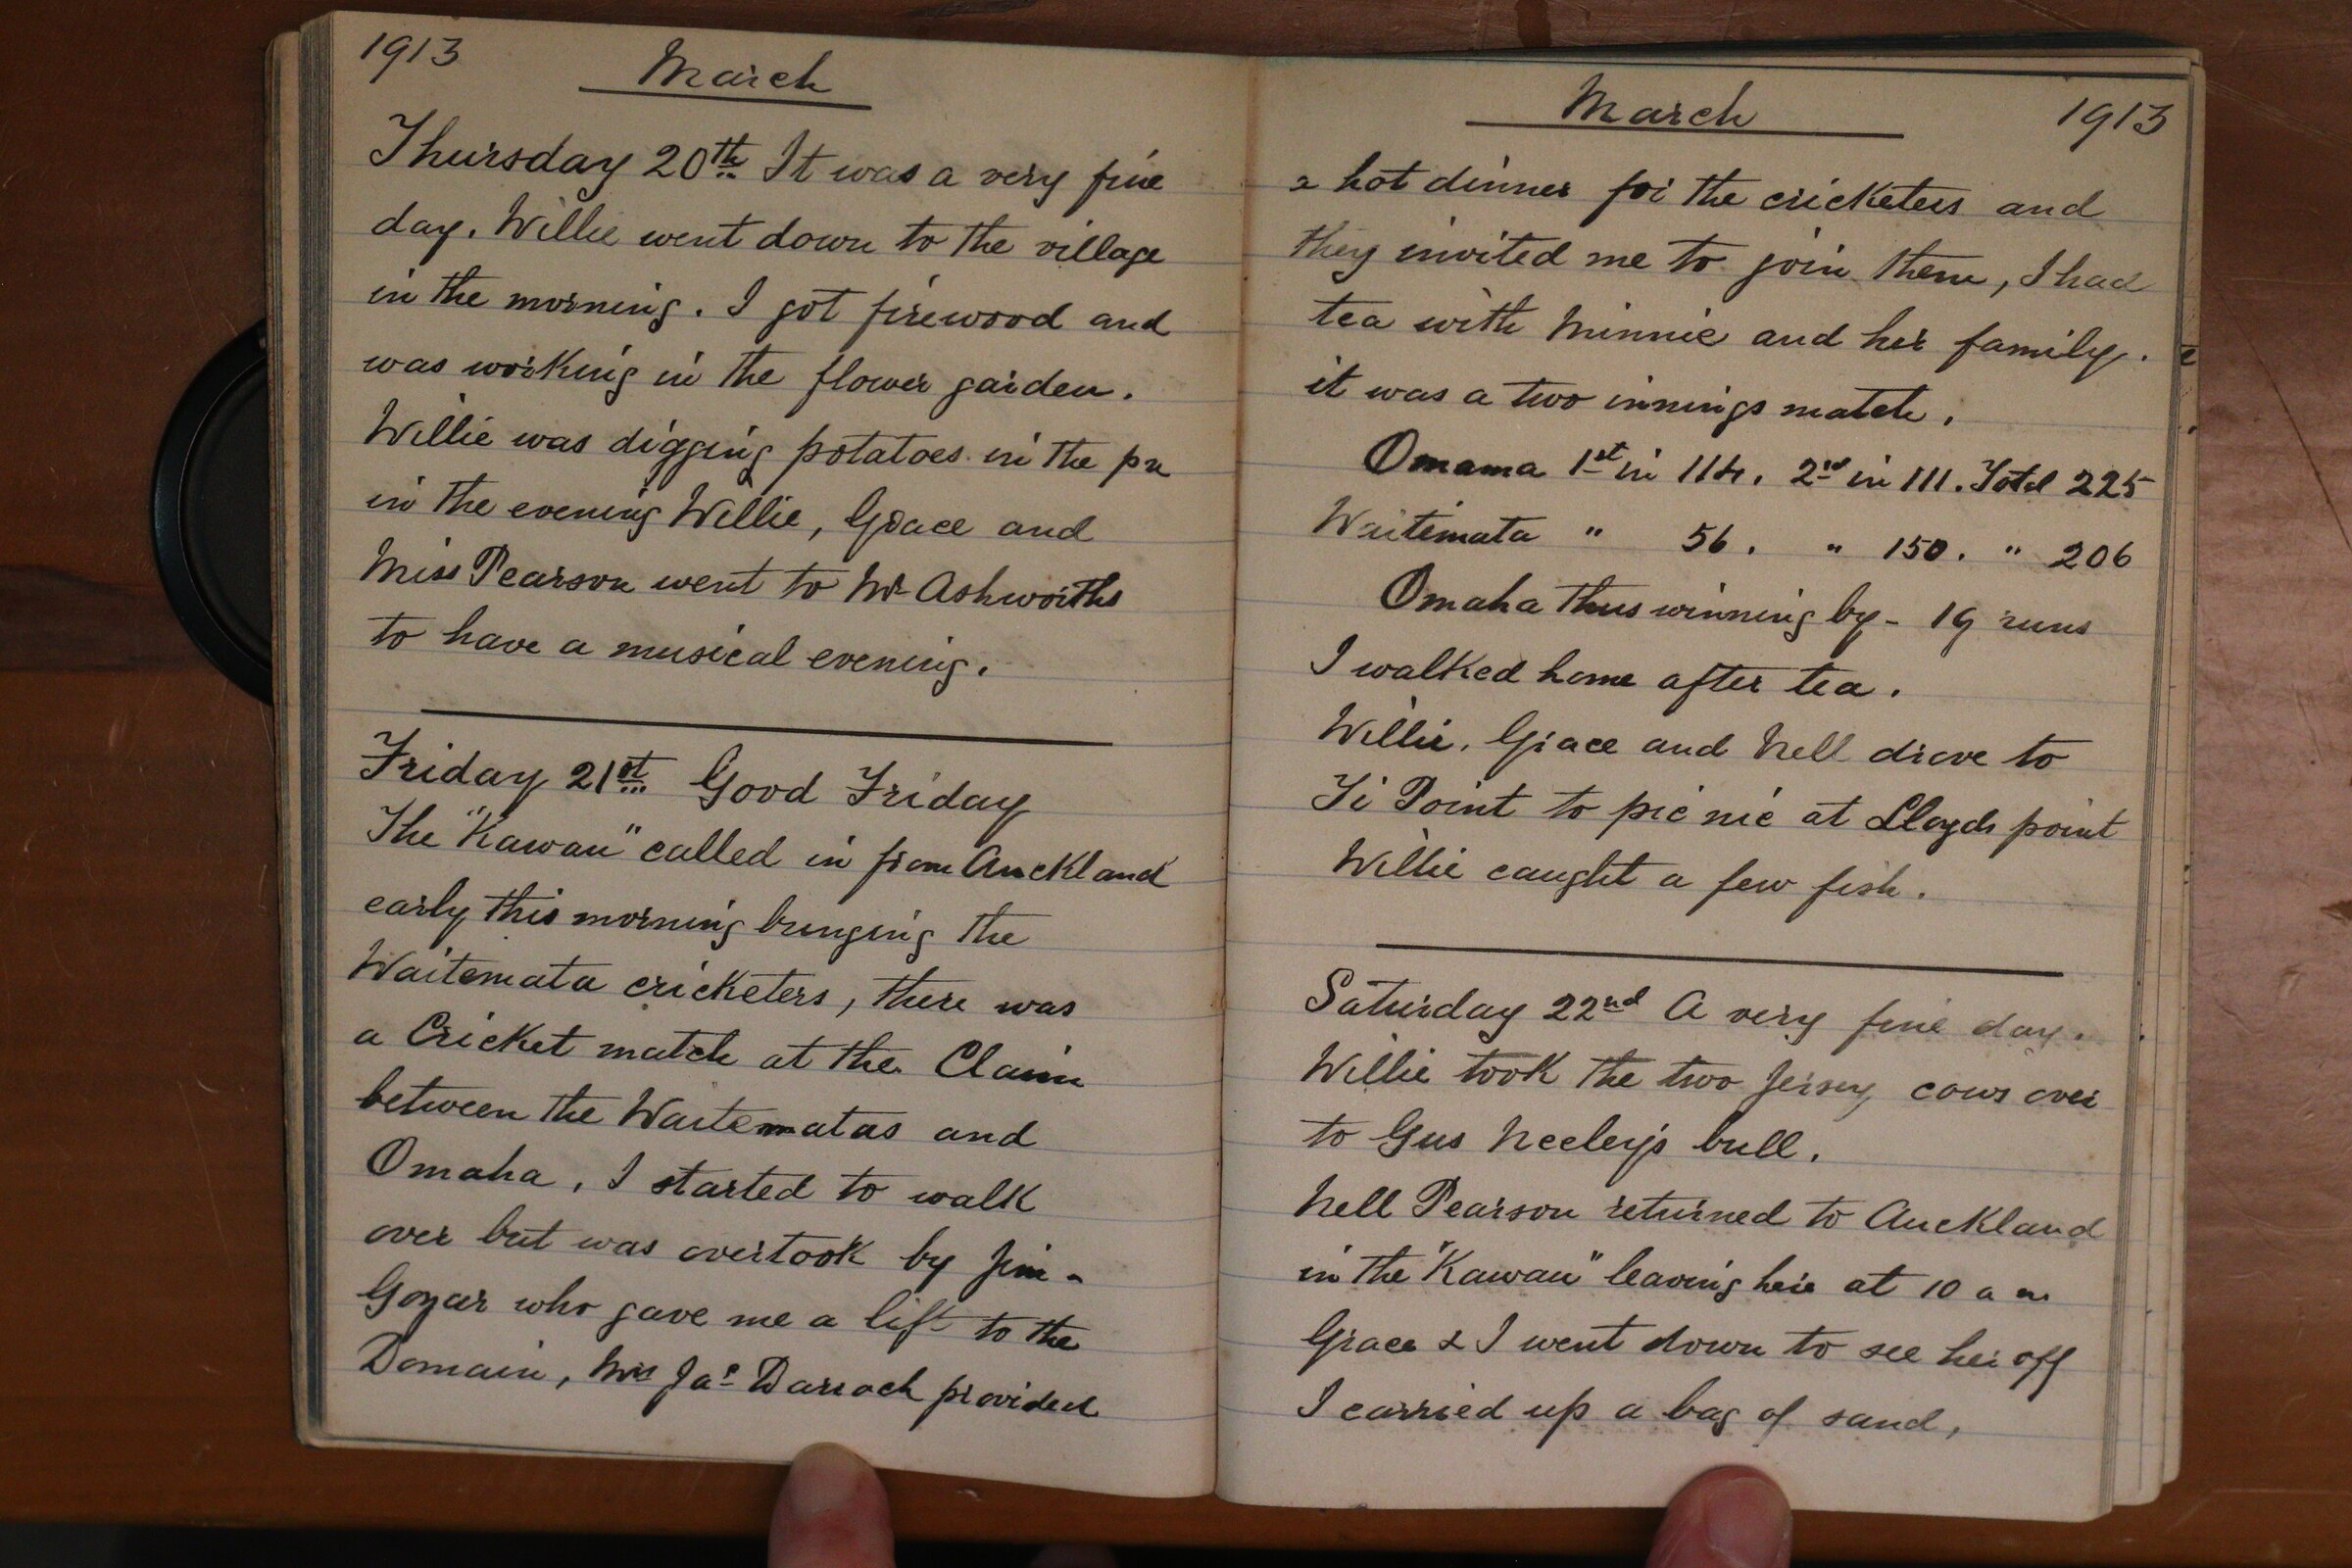 1913
March
Thursday 20th It was a very fine
day. Willie went down to the village
in the morning. I got firewood and
was working in the flower garden.
Willie was digging potatoes in the pm
in the evening Willie, Grace and
Miss Pearson went to Mr Ashworths
to have a musical evening.
Friday 21st Good Friday
The "Kawau" called in from Auckland
early this morning bringing the
Waitemata cricketers, there was
a Cricket match at the Claim
between the Waitematas and
Omaha, I started to walk
over but was overtook by Jim
Gozar who gave me a lift to the
Domain, Mrs Jas Darroch provided
March 1913
a hot dinner for the cricketers and
they invited me to join them, I had
tea with Minnie and her family.
it was a two innings match.
Omama 1st in 114. 2nd in 111. Total 225
Waitemata " 56. " 150. " 206
Omaha thus winning by - 19 runs
I walked home after tea.
Willie, Grace and Nell drove to
Ti Point to pic nic at Lloyds point
Willie caught a few fish.
Saturday 22nd A very fine day.
Willie took the two Jersey cows over
to Gus Neeley's bull.
Nell Pearson returned to Auckland
in the "Kawau" leaving here at 10 a m
Grace & I went down to see her off
I carried up a bag of sand,